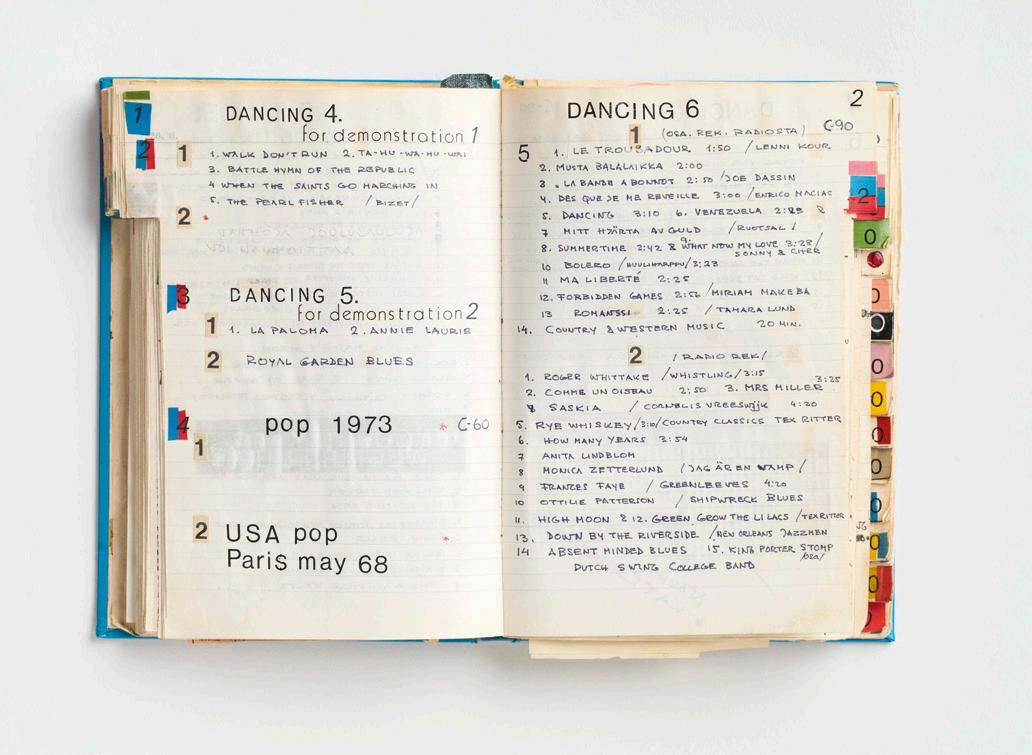 1
2
DANCING 4.
for demonstration 1
1
1. WALK DON'T RUN 2. TA-HU-WA-HU-WAI
3. BATTLE HYMN OF THE REPUBLIC
4 WHEN THE SAINTS GO MARCHING IN
5. THE PEARL FISHER / BIZET/
2
3
DANCING 5.
for demonstration 2
1
1. LA PALOMA 2. ANNIE LAURIE
2
ROYAL GARDEN BLUES
4
pop 1973
C-60
1
2
USA pop
Paris may 68
DANCING 6
2
1 (OSA. REK. RADIOSTA) C-90
5 1. LE TROUBADOUR 1:50 / LENNI KOUR
2. MUSTA BALALAIKKA 2:00
3. LA BANDE A BONNOT 2:50 / JOE DASSIN
4. DES QUE JE ME REVEILLE 3:00 / ENRICO MACIAS
5. DANCING 3:10 6. VENEZUELA 2:28
7 MITT HJÄRTA AV GULD / RUOTSAL /
8. SUMMERTIME 2:42 & 9. WHAT NOW MY LOVE 3:28/
SONNY & CHER
10 BOLERO / HUULIHARPPU / 3:23
11 MA LIBERTÉ 2:25
12. FORBIDDEN GAMES 2:56 / MIRIAM MAKEBA
13 ROMANSSI 2:25 / TAMARA LUND
14. COUNTRY & WESTERN MUSIC 20 MIN.
2 / RADIO REK/
1. ROGER WHITTAKE / WHISTLING / 3:15
2. COMME UN OISEAU 2:50 3. MRS MILLER 3:25
4 SASKIA / CORNELIS VREESWIJK 4:20
5. RYE WHISKEY /3:10/ COUNTRY CLASSICS TEX RITTER
6. HOW MANY YEARS 3:54
7 ANITA LINDBLOM
8 MONICA ZETTERLUND / JAG ÄR EN VAMP /
9 FRANCES FAYE / GREENLEEVES 4:20
10 OTTILIE PATTERSON / SHIPWRECK BLUES
11. HIGH MOON & 12. GREEN GROW THE LILACS / TEX RITTER
13. DOWN BY THE RIVERSIDE / NEW ORLEANS JAZZMEN
14 ABSENT MINDED BLUES 15. KING PORTER STOMP
/OSA/
DUTCH SWING COLLEGE BAND
2
0
0
0
0
0
0
0
0
0
0
0